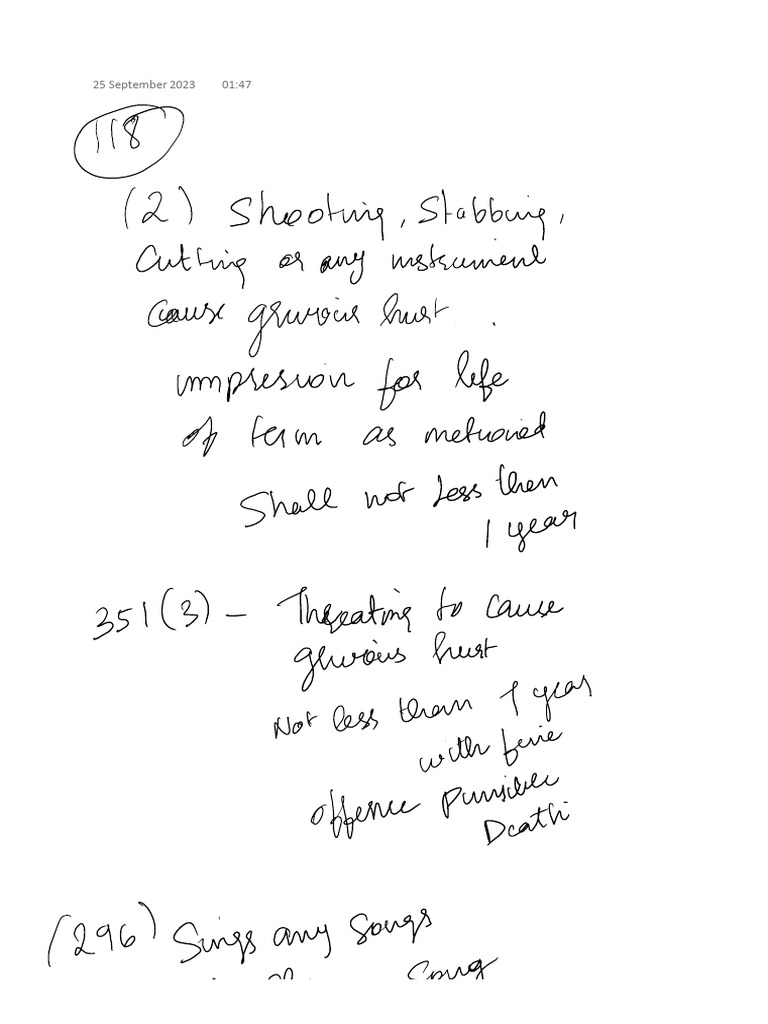 25 September 2023 01:47
118
(2) Shooting, Stabbing,
Cutting or any instrument
cause grivious hurt.
impresion for life
of term as metioned
Shall not Less then
1 year
351(3) - Threating to cause
grivious hurt
Not less than 1 year
with fine
offence punsible
Death
(296) Sings any songs
Song